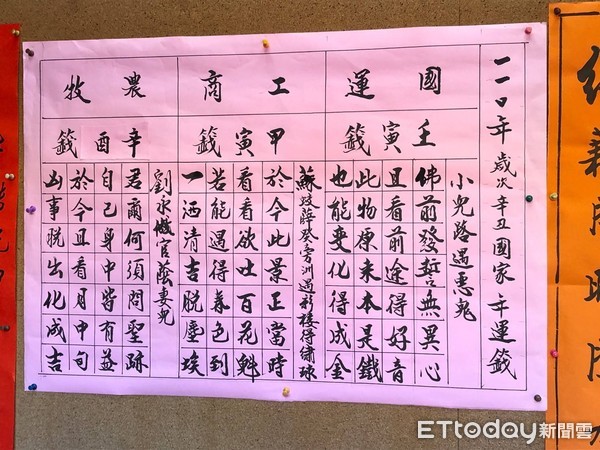 一一〇年歲次辛丑國家年運籤
國運
壬寅籤
小兒路遇惡鬼
佛前發誓無異心
且看前途得好音
此物原來本是鐵
也能變化得成金
工商
甲寅籤
蘇薛芳洲過彩樓得繡球
於今此景正當時
看看欲吐百花魁
若能遇得春色到
一洒清吉脫塵埃
農牧
辛酉籤
劉永做官蔭妻兒
君爾何須問聖跡
自己身中皆有益
於今且看月中旬
凶事脫出化成吉
ETtoday新聞雲